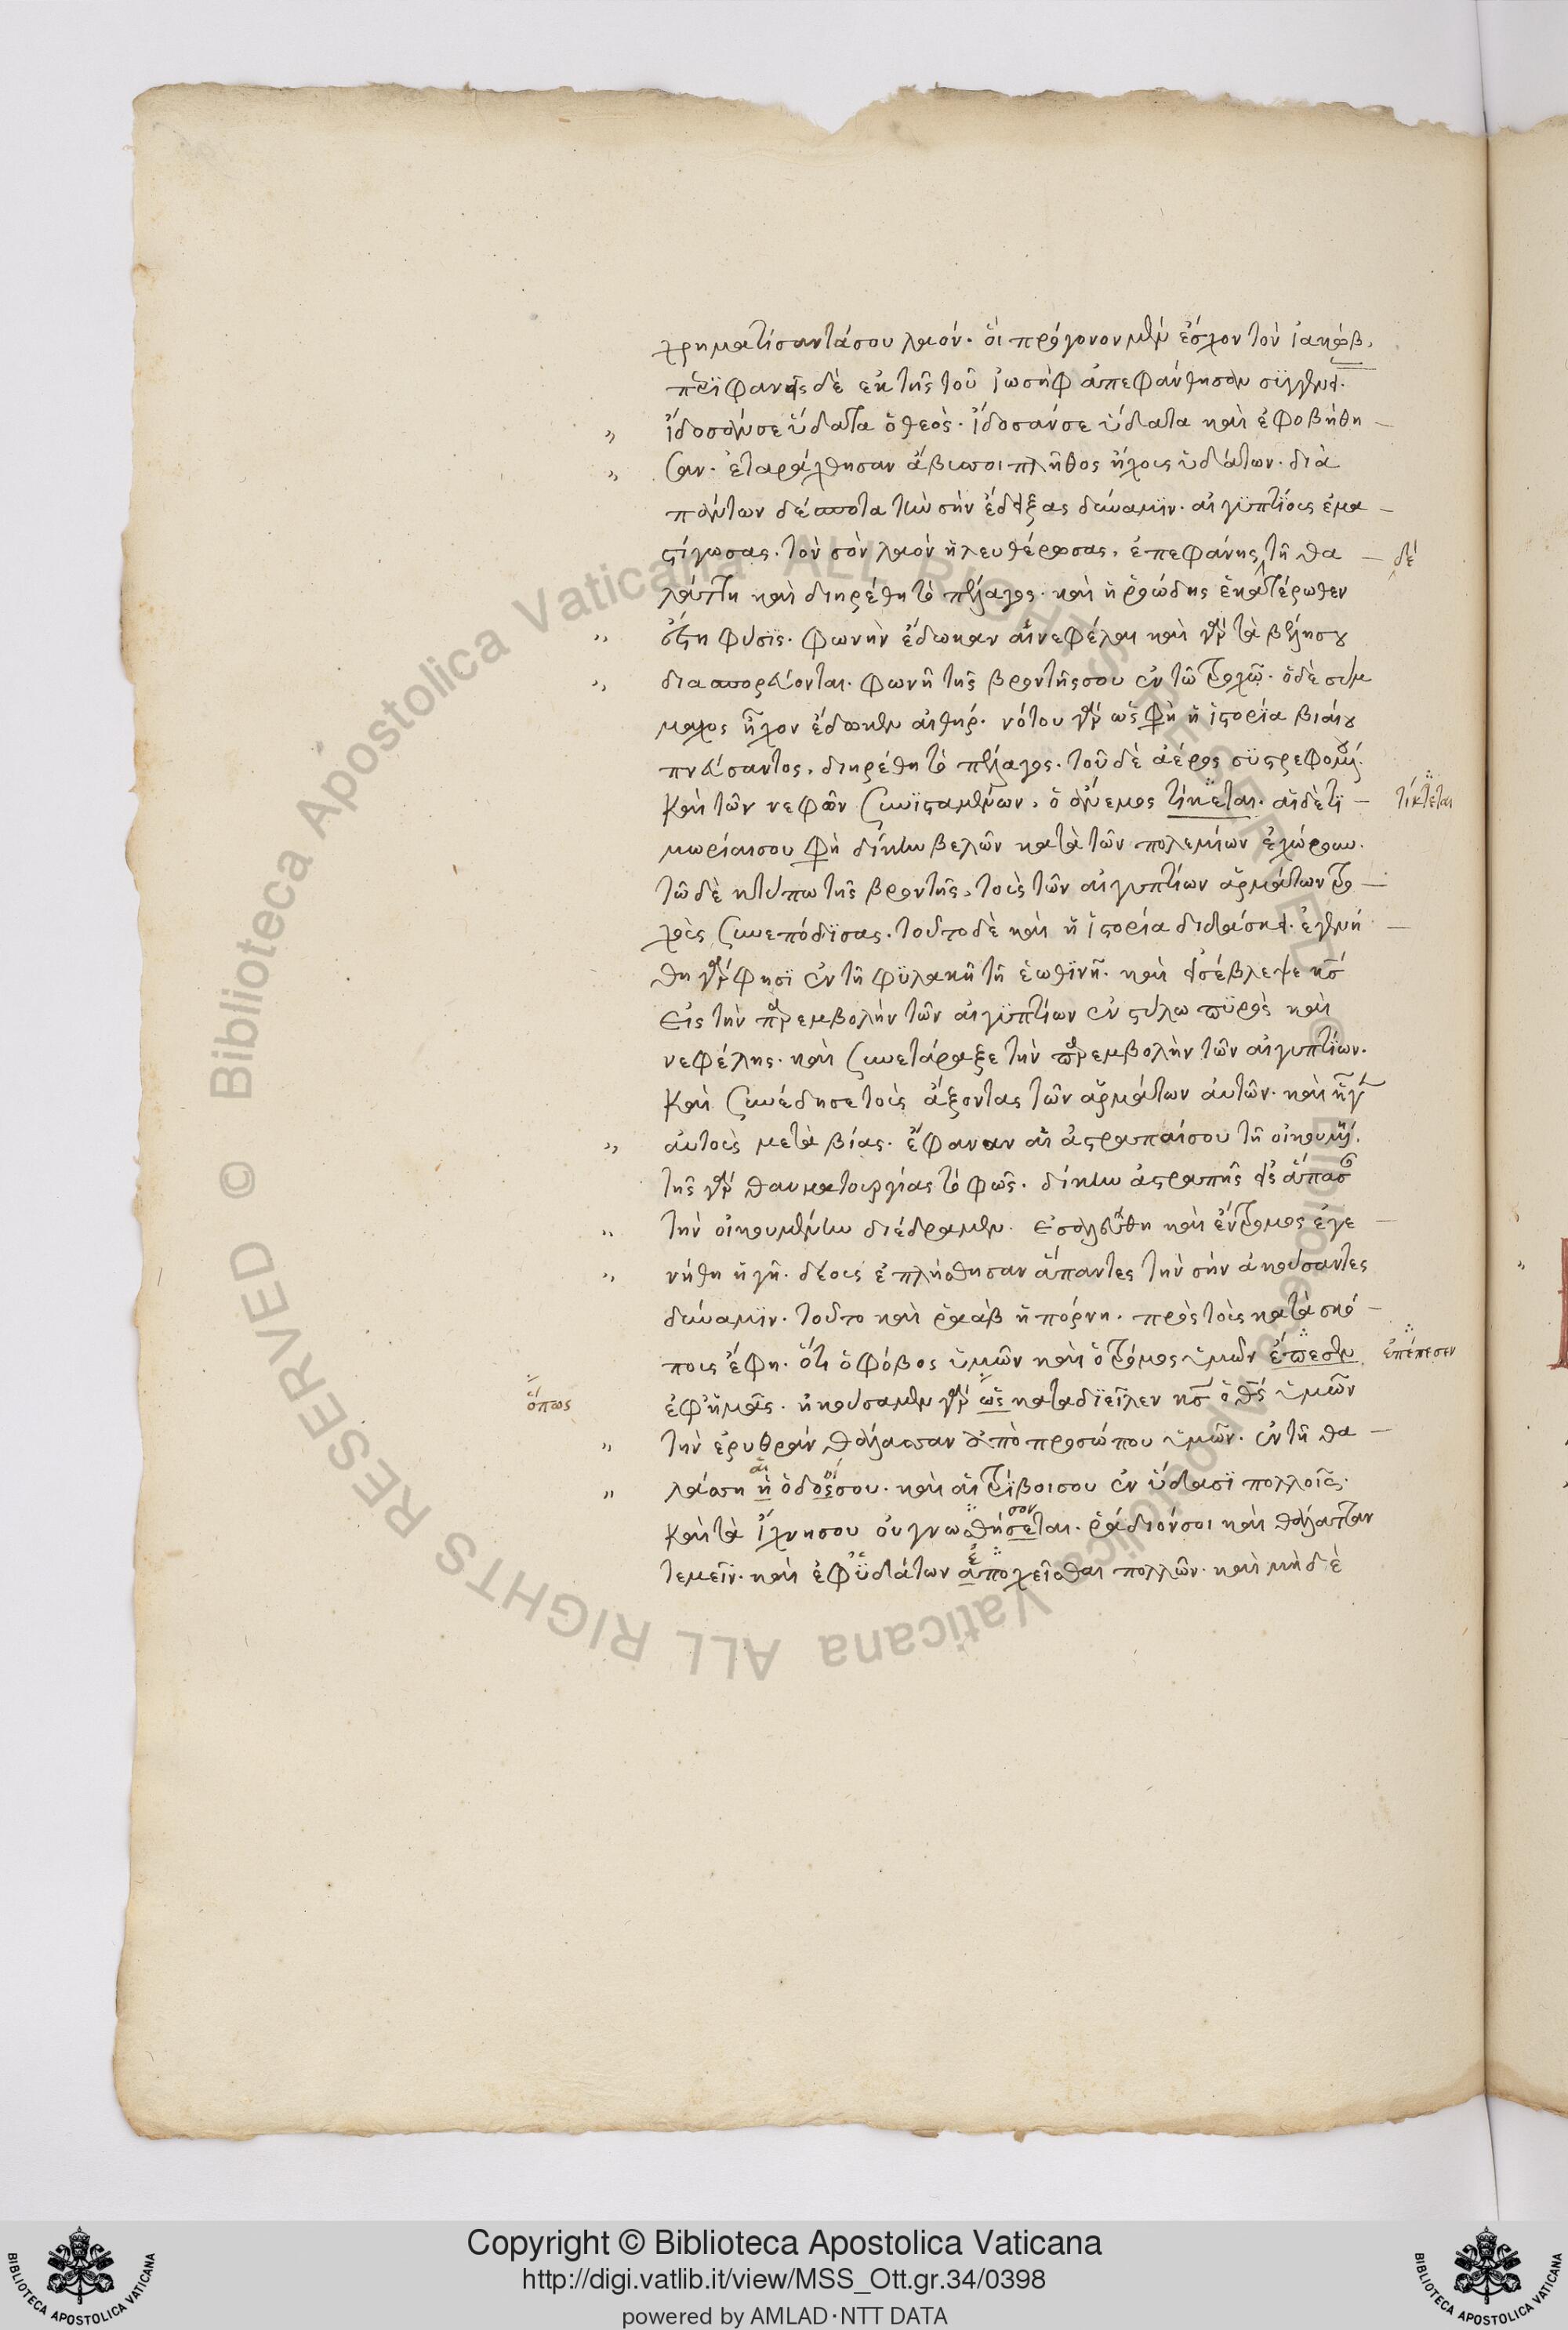 χρηματίσαντά σου λαόν· οἳ πρόγονον μὲν ἔσχον τὸν ἰακώβ,
περιφανεῖς δὲ ἐκ τῆς τοῦ ἰωσὴφ ἀπεφάνθησαν συγγενεί
ἴδοσάν σε ὕδατα ὁ θεός· ἴδοσάν σε ὕδατα καὶ ἐφοβήθη
σαν· ἐταράχθησαν ἄβυσσοι πλῆθος ἤχους ὑδάτων· διὰ
πάντων δέσποτα τὴν σὴν ἔδειξας δύναμιν· αἰγυπτίους ἐμα
στίγωσας· τὸν σὸν λαὸν ἠλευθέρωσας, ἐπεφάνης τῆ θα
δέ
λάττη καὶ διηρέθη τὸ πέλαγος· καὶ ἡ ῥοώδης ἑκατέρωθεν
ἔστη φύσις· φωνὴν ἔδωκαν αἱ νεφέλαι καὶ γὰρ τὰ βέλη σου
διαπορεύονται· φωνὴ τῆς βροντῆς σου ἐν τῶ τροχῶ· ὁ δὲ σύμ
μαχος ἦχον ἔδωκεν αἰθήρ· νότου γὰρ ὥς φη ἡ ἱστορία βιαίου
πνεύσαντος, διηρέθη τὸ πέλαγος· τοῦ δὲ ἀέρος συστρεφομέ
καὶ τῶν νεφῶν συνισταμένων, ὁ ἄνεμος τίκεται· αἱ δὲ τι
τίκτεται
μωρίαι σου φη δίκην βελῶν κατὰ τῶν πολεμίων ἐχώρουν·
τῶ δὲ κτύπω τῆς βροντῆς, τοὺς τῶν αἰγυπτίων ἁρμάτων τρο
χοὺς συνεπόδισας· τοῦτο δὲ καὶ ἡ ἱστορία διδάσκει· ἐγενή
θη γάρ φησι ἐν τῆ φυλακῆ τῆ ἑωθινῆ· καὶ εἰσέβλεψε κς
εἰς τὴν παρεμβολὴν τῶν αἰγυπτίων ἐν στύλω πυρὸς καὶ
νεφέλης· καὶ συνετάραξε τὴν παρεμβολὴν τῶν αἰγυπτίων·
καὶ συνέδησε τοὺς ἄξοντας τῶν ἁρμάτων αὐτῶν· καὶ ἦγ
αὐτοὺς μετὰ βίας· ἔφαναν αἱ ἀστραπαί σου τῆ οἰκουμέ
τῆς γὰρ θαυματουργίας τὸ φῶς· δίκην ἀστραπῆς εἰς ἅπασ
τὴν οἰκουμένην διέδραμεν· ἐσαλεύθη καὶ ἔντρομος ἐγε
νήθη ἡ γῆ· δέους ἐπλήσθησαν ἅπαντες τὴν σὴν ἀκούσαντες
δύναμιν· τοῦτο καὶ ῥαὰβ ἡ πόρνη· πρὸς τοὺς κατασκό
πους ἔφη· ὅτι ὁ φόβος ὑμῶν καὶ ὁ τρόμος ὑμῶν ἐπεσεν
ἐπέπεσεν
ἐφ ἡμᾶς· ἠκούσαμεν γὰρ ὡς καταδιεῖλεν κς ὁ θς ὑμῶν
ὅπως
τὴν ἐρυθρὰν θάλασσαν ἀπὸ προσώπου ὑμῶν· ἐν τῆ θα
αἱ οί
λάσση ἡ ὁδός σου· καὶ αἱ τρίβοι σου ἐν ὕδασι πολλοῖς·
σον
καὶ τὰ ἴχνη σου οὐ γνωσθήσεται· ῥάδιόν σοι καὶ θάλατταν
ἐ
τεμεῖν· καὶ ἐφ ὑδάτων ἀποχεῖσθαι πολλῶν· καὶ μὴ δὲ
Copyright © Biblioteca Apostolica Vaticana
http://digi.vatlib.it/view/MSS_Ott.gr.34/0398
powered by AMLAD·NTT DATA